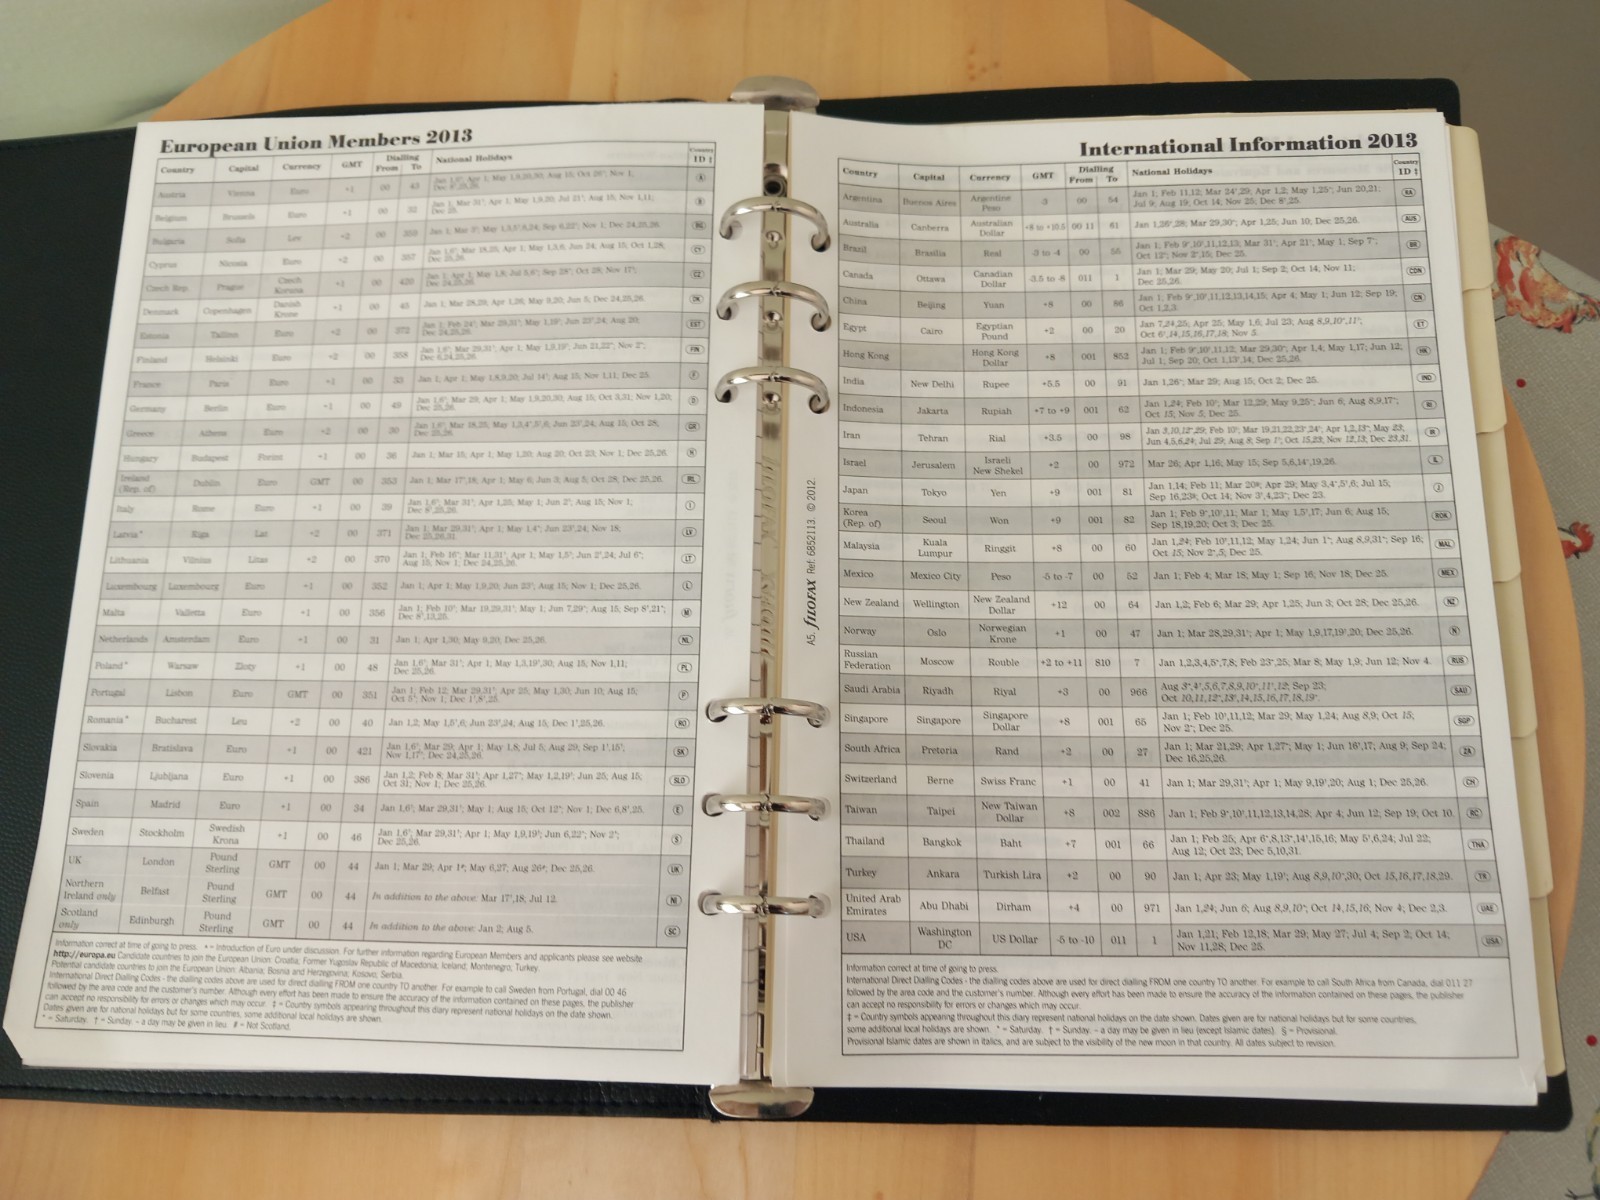 European Union Members 2013
Country Capital Currency GMT Dialling From To National Holidays Country ID ‡
Austria Vienna Euro +1 00 43
Belgium Brussels Euro +1 00 32
Bulgaria Sofia Lev +2 00 359
Cyprus Nicosia Euro +2 00 357
Czech Rep. Prague Czech Koruna +1 00 420
Denmark Copenhagen Danish Krone +1 00 45
Estonia Tallinn Euro +2 00 372
Finland Helsinki Euro +2 00 358
France Paris Euro +1 00 33
Germany Berlin Euro +1 00 49
Greece Athens Euro +2 00 30
Hungary Budapest Forint +1 00 36 Jan 1; Mar 15; Apr 1; May 1,20; Aug 20; Oct 23; Nov 1; Dec 25,26. H
Ireland (Rep. of) Dublin Euro GMT 00 353 Jan 1; Mar 17†,18; Apr 1; May 6; Jun 3; Aug 5; Oct 28; Dec 25,26. IRL
Italy Rome Euro +1 00 39
Latvia* Riga Lat +2 00 371
Lithuania Vilnius Litas +2 00 370
Luxembourg Luxembourg Euro +1 00 352 Jan 1; Apr 1; May 1,9,20; Jun 23†; Aug 15; Nov 1; Dec 25,26. L
Malta Valletta Euro +1 00 356
Netherlands Amsterdam Euro +1 00 31 Jan 1; Apr 1,30; May 9,20; Dec 25,26. NL
Poland* Warsaw Zloty +1 00 48 Jan 1,6†; Mar 31†; Apr 1; May 1,3,19†,30; Aug 15; Nov 1,11; Dec 25,26. PL
Portugal Lisbon Euro GMT 00 351 P
Romania* Bucharest Leu +2 00 40 Jan 1,2; May 1,5†,6; Jun 23†,24; Aug 15; Dec 1†,25,26. RO
Slovakia Bratislava Euro +1 00 421 Jan 1,6†; Mar 29; Apr 1; May 1,8; Jul 5; Aug 29; Sep 1†,15†; Nov 1,17†; Dec 24,25,26. SK
Slovenia Ljubljana Euro +1 00 386 Jan 1,2; Feb 8; Mar 31†; Apr 1,27*; May 1,2,19†; Jun 25; Aug 15; Oct 31; Nov 1; Dec 25,26. SLO
Spain Madrid Euro +1 00 34 Jan 1,6†; Mar 29,31†; May 1; Aug 15; Oct 12*; Nov 1; Dec 6,8†,25. E
Sweden Stockholm Swedish Krona +1 00 46 Jan 1,6†; Mar 29,31†; Apr 1; May 1,9,19†; Jun 6,22*; Nov 2*; Dec 25,26. S
UK London Pound Sterling GMT 00 44 Jan 1; Mar 29; Apr 1#; May 6,27; Aug 26#; Dec 25,26. UK
Northern Ireland only Belfast Pound Sterling GMT 00 44 In addition to the above: Mar 17†,18; Jul 12. NI
Scotland only Edinburgh Pound Sterling GMT 00 44 In addition to the above: Jan 2; Aug 5. SC
Information correct at time of going to press. * = Introduction of Euro under discussion. For further information regarding European Members and applicants please see website
http://europa.eu Candidate countries to join the European Union: Croatia; Former Yugoslav Republic of Macedonia; Iceland; Montenegro; Turkey.
Potential candidate countries to join the European Union: Albania; Bosnia and Herzegovina; Kosovo; Serbia.
International Direct Dialling Codes - the dialling codes above are used for direct dialling FROM one country TO another. For example to call Sweden from Portugal, dial 00 46
followed by the area code and the customer's number. Although every effort has been made to ensure the accuracy of the information contained on these pages, the publisher
can accept no responsibility for errors or changes which may occur. ‡ = Country symbols appearing throughout this diary represent national holidays on the date shown.
Dates given are for national holidays but for some countries, some additional local holidays are shown.
* = Saturday. † = Sunday. – a day may be given in lieu. # = Not Scotland.
A5. fILOFAX Ref. 6852113. © 2012.
International Information 2013
Country Capital Currency GMT Dialling From To National Holidays Country ID ‡
Argentina Buenos Aires Argentine Peso -3 00 54 Jan 1; Feb 11,12; Mar 24†,29; Apr 1,2; May 1,25*; Jun 20,21; Jul 9; Aug 19; Oct 14; Nov 25; Dec 8†,25. RA
Australia Canberra Australian Dollar +8 to +10.5 00 11 61 Jan 1,26*,28; Mar 29,30*; Apr 1,25; Jun 10; Dec 25,26. AUS
Brazil Brasilia Real -3 to -4 00 55 Jan 1; Feb 9*,10†,11,12,13; Mar 31†; Apr 21†; May 1; Sep 7*; Oct 12*; Nov 2*,15; Dec 25. BR
Canada Ottawa Canadian Dollar -3.5 to -8 011 1 Jan 1; Mar 29; May 20; Jul 1; Sep 2; Oct 14; Nov 11; Dec 25,26. CDN
China Beijing Yuan +8 00 86 Jan 1; Feb 9*,10†,11,12,13,14,15; Apr 4; May 1; Jun 12; Sep 19; Oct 1,2,3. CN
Egypt Cairo Egyptian Pound +2 00 20 Jan 7,24,25; Apr 25; May 1,6; Jul 23; Aug 8,9,10*,11†; Oct 6†,14,15,16,17,18; Nov 5. ET
Hong Kong Hong Kong Dollar +8 001 852 Jan 1; Feb 9*,10†,11,12; Mar 29,30*; Apr 1,4; May 1,17; Jun 12; Jul 1; Sep 20; Oct 1,13†,14; Dec 25,26. HK
India New Delhi Rupee +5.5 00 91 Jan 1,26*; Mar 29; Aug 15; Oct 2; Dec 25. IND
Indonesia Jakarta Rupiah +7 to +9 001 62 Jan 1,24; Feb 10†; Mar 12,29; May 9,25*; Jun 6; Aug 8,9,17*; Oct 15; Nov 5; Dec 25. RI
Iran Tehran Rial +3.5 00 98 IR
Israel Jerusalem Israeli New Shekel +2 00 972 Mar 26; Apr 1,16; May 15; Sep 5,6,14*,19,26. IL
Japan Tokyo Yen +9 001 81 Jan 1,14; Feb 11; Mar 20§; Apr 29; May 3,4*,5†,6; Jul 15; Sep 16,23§; Oct 14; Nov 3†,4,23*; Dec 23. J
Korea (Rep. of) Seoul Won +9 001 82 Jan 1; Feb 9*,10†,11; Mar 1; May 1,5†,17; Jun 6; Aug 15; Sep 18,19,20; Oct 3; Dec 25. ROK
Malaysia Kuala Lumpur Ringgit +8 00 60 Jan 1,24; Feb 10†,11,12; May 1,24; Jun 1*; Aug 8,9,31*; Sep 16; Oct 15; Nov 2*,5; Dec 25. MAL
Mexico Mexico City Peso -5 to -7 00 52 Jan 1; Feb 4; Mar 18; May 1; Sep 16; Nov 18; Dec 25. MEX
New Zealand Wellington New Zealand Dollar +12 00 64 Jan 1,2; Feb 6; Mar 29; Apr 1,25; Jun 3; Oct 28; Dec 25,26. NZ
Norway Oslo Norwegian Krone +1 00 47 Jan 1; Mar 28,29,31†; Apr 1; May 1,9,17,19†,20; Dec 25,26. N
Russian Federation Moscow Rouble +2 to +11 810 7 Jan 1,2,3,4,5*,7,8; Feb 23*,25; Mar 8; May 1,9; Jun 12; Nov 4. RUS
Saudi Arabia Riyadh Riyal +3 00 966 Aug 3*,4†,5,6,7,8,9,10*,11†,12; Sep 23; Oct 10,11,12*,13†,14,15,16,17,18,19*. SAU
Singapore Singapore Singapore Dollar +8 001 65 Jan 1; Feb 10†,11,12; Mar 29; May 1,24; Aug 8,9; Oct 15; Nov 2*; Dec 25. SGP
South Africa Pretoria Rand +2 00 27 Jan 1; Mar 21,29; Apr 1,27*; May 1; Jun 16†,17; Aug 9; Sep 24; Dec 16,25,26. ZA
Switzerland Berne Swiss Franc +1 00 41 Jan 1; Mar 29,31†; Apr 1; May 9,19†,20; Aug 1; Dec 25,26. CH
Taiwan Taipei New Taiwan Dollar +8 002 886 Jan 1; Feb 9*,10†,11,12,13,14,28; Apr 4; Jun 12; Sep 19; Oct 10. RC
Thailand Bangkok Baht +7 001 66 Jan 1; Feb 25; Apr 6*,8,13*,14†,15,16; May 5†,6,24; Jul 22; Aug 12; Oct 23; Dec 5,10,31. THA
Turkey Ankara Turkish Lira +2 00 90 Jan 1; Apr 23; May 1,19†; Aug 8,9,10*,30; Oct 15,16,17,18,29. TR
United Arab Emirates Abu Dhabi Dirham +4 00 971 Jan 1,24; Jun 6; Aug 8,9,10*; Oct 14,15,16; Nov 4; Dec 2,3. UAE
USA Washington DC US Dollar -5 to -10 011 1 Jan 1,21; Feb 12,18; Mar 29; May 27; Jul 4; Sep 2; Oct 14; Nov 11,28; Dec 25. USA
Information correct at time of going to press.
International Direct Dialling Codes - the dialling codes above are used for direct dialling FROM one country TO another. For example to call South Africa from Canada, dial 011 27
followed by the area code and the customer's number. Although every effort has been made to ensure the accuracy of the information contained on these pages, the publisher
can accept no responsibility for errors or changes which may occur.
‡ = Country symbols appearing throughout this diary represent national holidays on the date shown. Dates given are for national holidays but for some countries,
some additional local holidays are shown. * = Saturday. † = Sunday. – a day may be given in lieu (except Islamic dates). § = Provisional.
Provisional Islamic dates are shown in italics, and are subject to the visibility of the new moon in that country. All dates subject to revision.